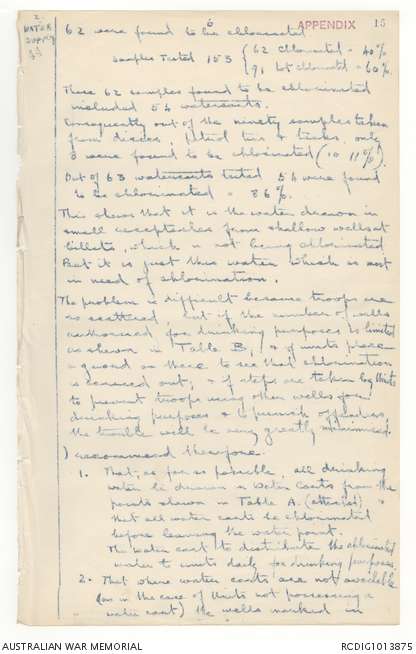 2.
WATER
SUPPLY
6
APPENDIX 15
62 were found to be chlorinated
Samples Tested 153 { 62 chlorinated = 40%
91 not chlorinated = 60%.
These 62 samples found to be chlorinated
included 54 watercarts.
Consequently out of the ninety samples taken
from dixies, petrol tins & tanks, only
8 were found to be chlorinated (10 11%).
Out of 63 watercarts tested 54 were found
to be chlorinated = 86%.
This shews that it is the water drawn in
small receptacles from shallow wells at
billets, which is not being chlorinated
But it is just this water which is most
in need of chlorination.
The problem is difficult because troops are
so scattered, but if the number of wells
authorised for drinking purposes is limited
as shewn in Table B, & if units place
a guard on these to see that chlorination
is carried out; & if steps are taken by Units
to prevent troops using other wells for
drinking purposes & to punish offenders,
the trouble will be very greatly minimised.
I recommend therefore.
1. That, as far as possible, all drinking
water be drawn in Water Carts from the
points shewn in Table A. (attached) &
that all water carts be chlorinated
before leaving the water point.
The water cart to distribute the chlorinated
water to units daily for drinking purposes.
2. That where water carts are not available
(as in the case of Units not possessing a
water cart) the wells marked in
AUSTRALIAN WAR MEMORIAL
RCDIG1013875